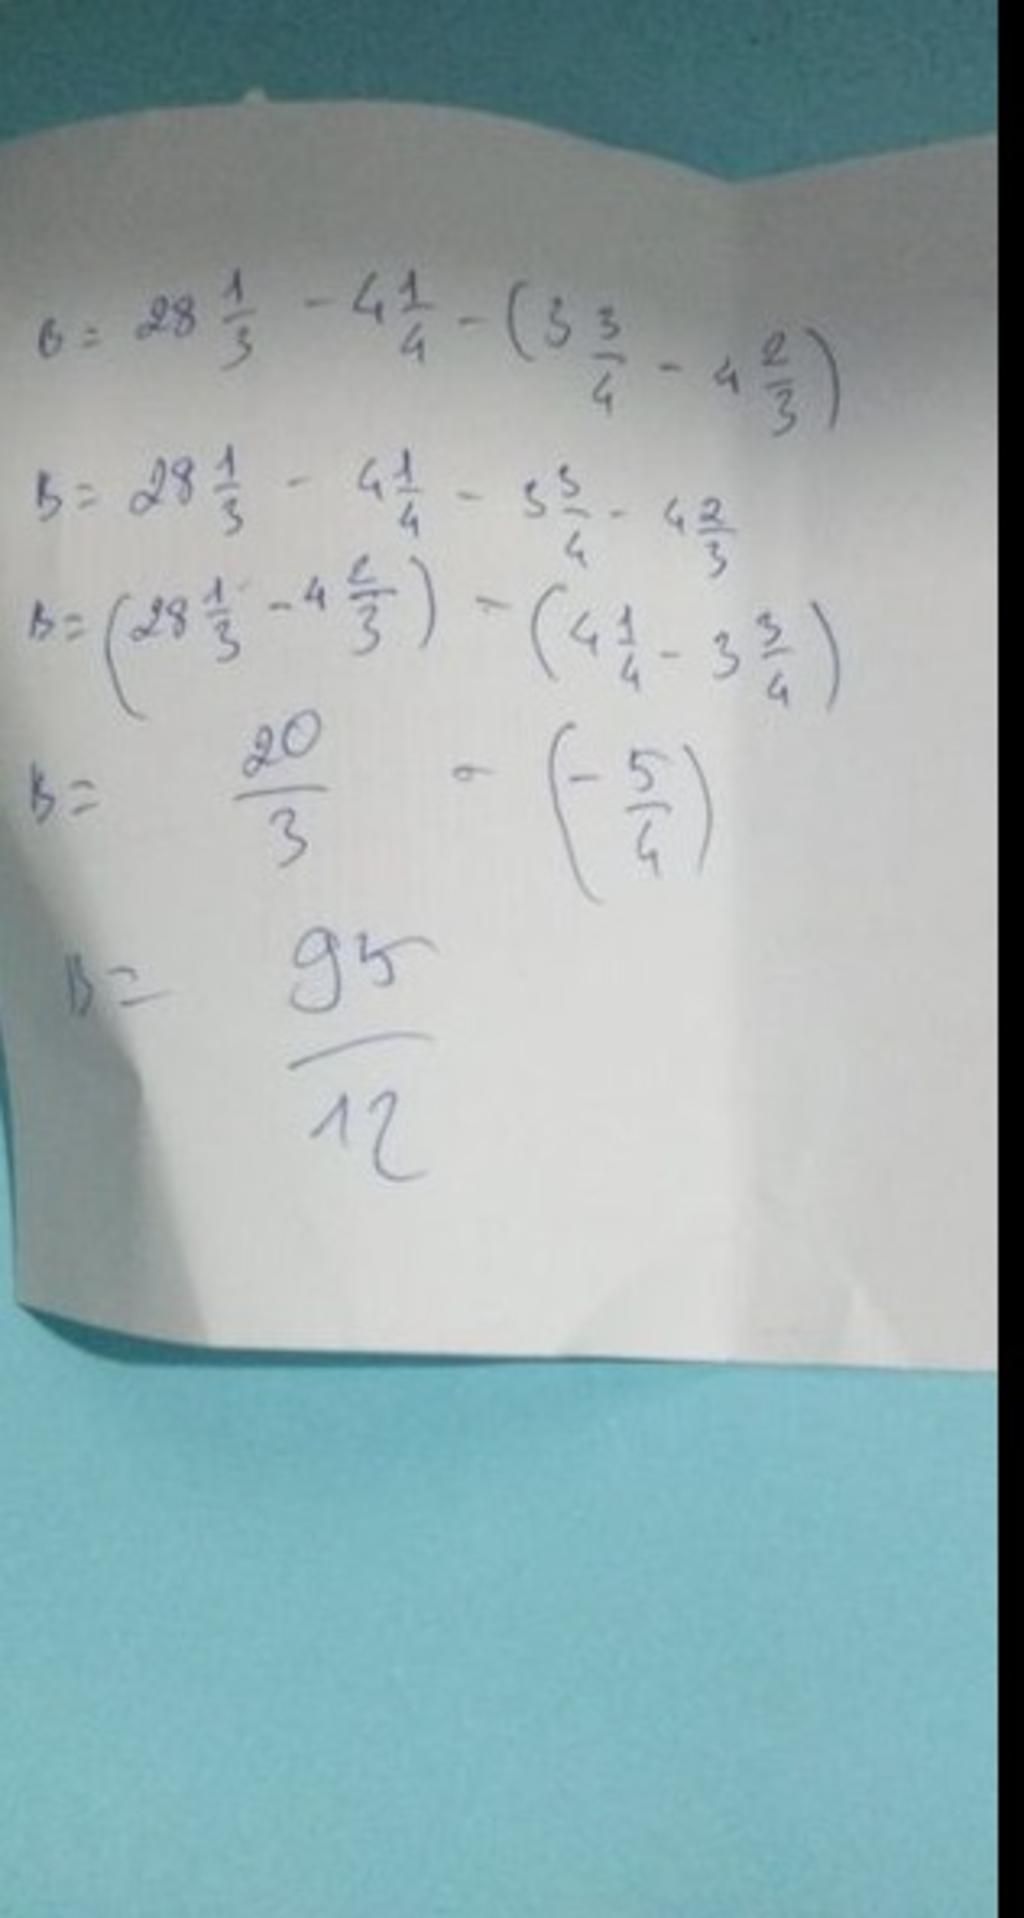 B = 28 1/3 - 4 1/4 - (3 3/4 - 4 2/3)
B = 28 1/3 - 4 1/4 - 3 3/4 - 4 2/3
B = (28 1/3 - 4 2/3) - (4 1/4 - 3 3/4)
B = 20/3 - (- 5/4)
B = 95/12